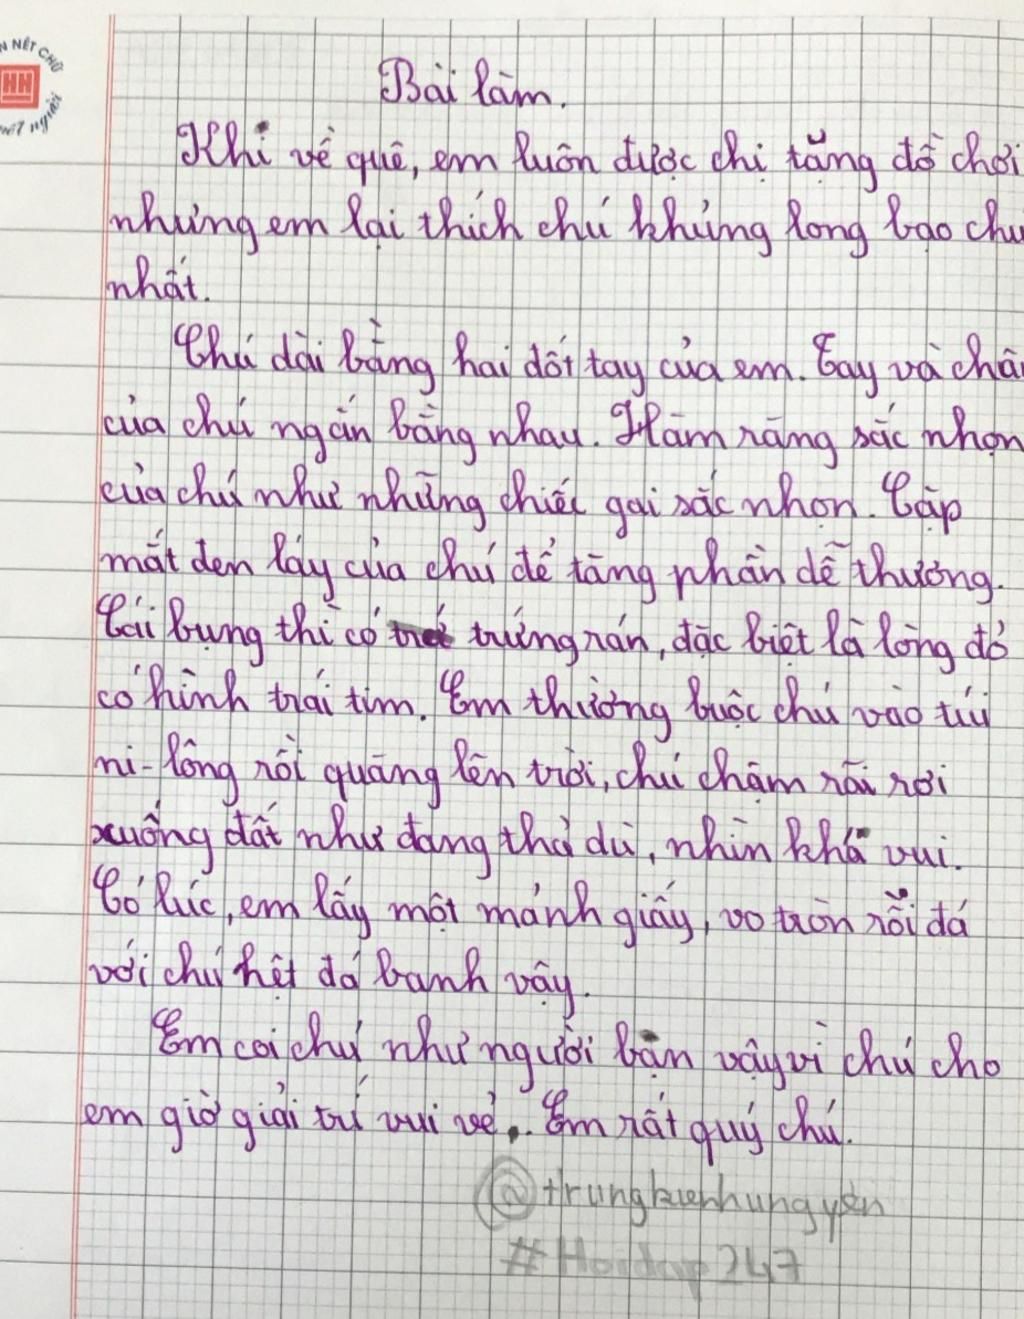 N NÉT CHỮ
HH
nét người
Bài làm.
Khi về quê, em luôn được chị tặng đồ chơi
nhưng em lại thích chú khủng long bạo chú
nhất.
Chú dài bằng hai đốt tay của em. Tay và chân
của chú ngắn bằng nhau. Hàm răng sắc nhọn
của chú như những chiếc gai sắc nhọn. Cặp
mắt đen láy của chú để tăng phần dễ thương.
Cái bụng thì có trứng rán, đặc biệt là lòng đỏ
có hình trái tim. Em thường buộc chú vào túi
ni-lông rồi quăng lên trời, chú chậm rãi rơi
xuống đất như đang thả dù, nhìn khá vui.
Có lúc, em lấy một mảnh giấy, vo tròn rồi đá
với chú hệt đá banh vậy.
Em coi chú như người bạn vậy vì chú cho
em giờ giải trí vui vẻ. Em rất quý chú.
@trungkienhungyên
#Hoidap247